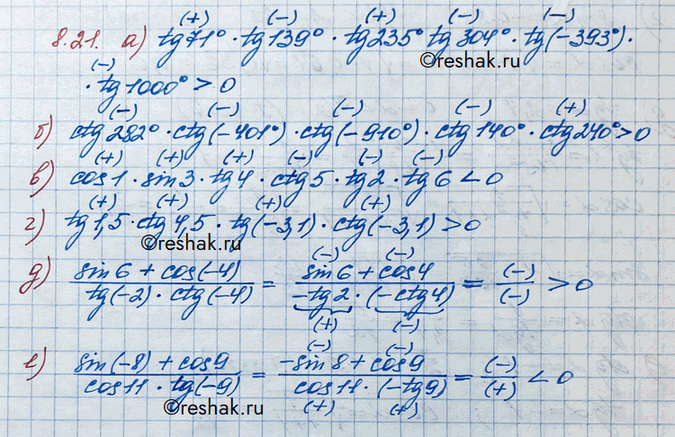 (+) (-) (+) (-) (-)
8.21. а) tg71° · tg139° · tg235° tg304° · tg(-393°) ·
©reshak.ru
(-)
· tg1000° > 0
(-) (-) (-) (-) (+)
б) ctg282° · ctg(-401°) · ctg(-910°) · ctg140° · ctg240° > 0
(+) (+) (+) (-) (-) (-)
в) cos1 · sin3 · tg4 · ctg5 · tg2 · tg6 < 0
(+) (+) (+) (+)
г) tg1,5 · ctg4,5 · tg(-3,1) · ctg(-3,1) > 0
©reshak.ru
(-) (-)
д) sin6 + cos(-4) / tg(-2) · ctg(-4) = sin6 + cos4 / -tg2 · (-ctg4) = (-) / (-) > 0
(+) (-)
(-) (-)
е) sin(-8) + cos9 / cos11 · tg(-9) = -sin8 + cos9 / cos11 · (-tg9) = (-) / (+) < 0
(+) (+)
©reshak.ru